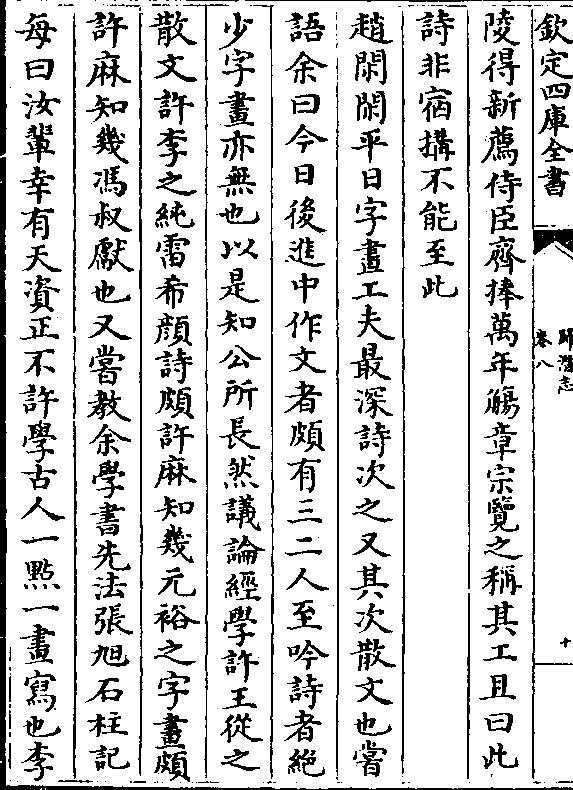 欽定四庫全書
歸潛志
卷八
十
陵得新薦侍臣齊捧萬年觴章宗覽之稱其工且曰此
詩非宿搆不能至此
趙閑閑平日字畫工夫最深詩次之又其次散文也嘗
語余曰今日後進中作文者頗有三二人至吟詩者絕
少字畫亦無也以是知公所長然議論經學許王從之
散文許李之純雷希顔詩頗許麻知幾元裕之字畫頗
許麻知幾馮叔獻也又嘗教余學書先法張旭石柱記
每曰汝輩幸有天資正不許學古人一點一畫寫也李